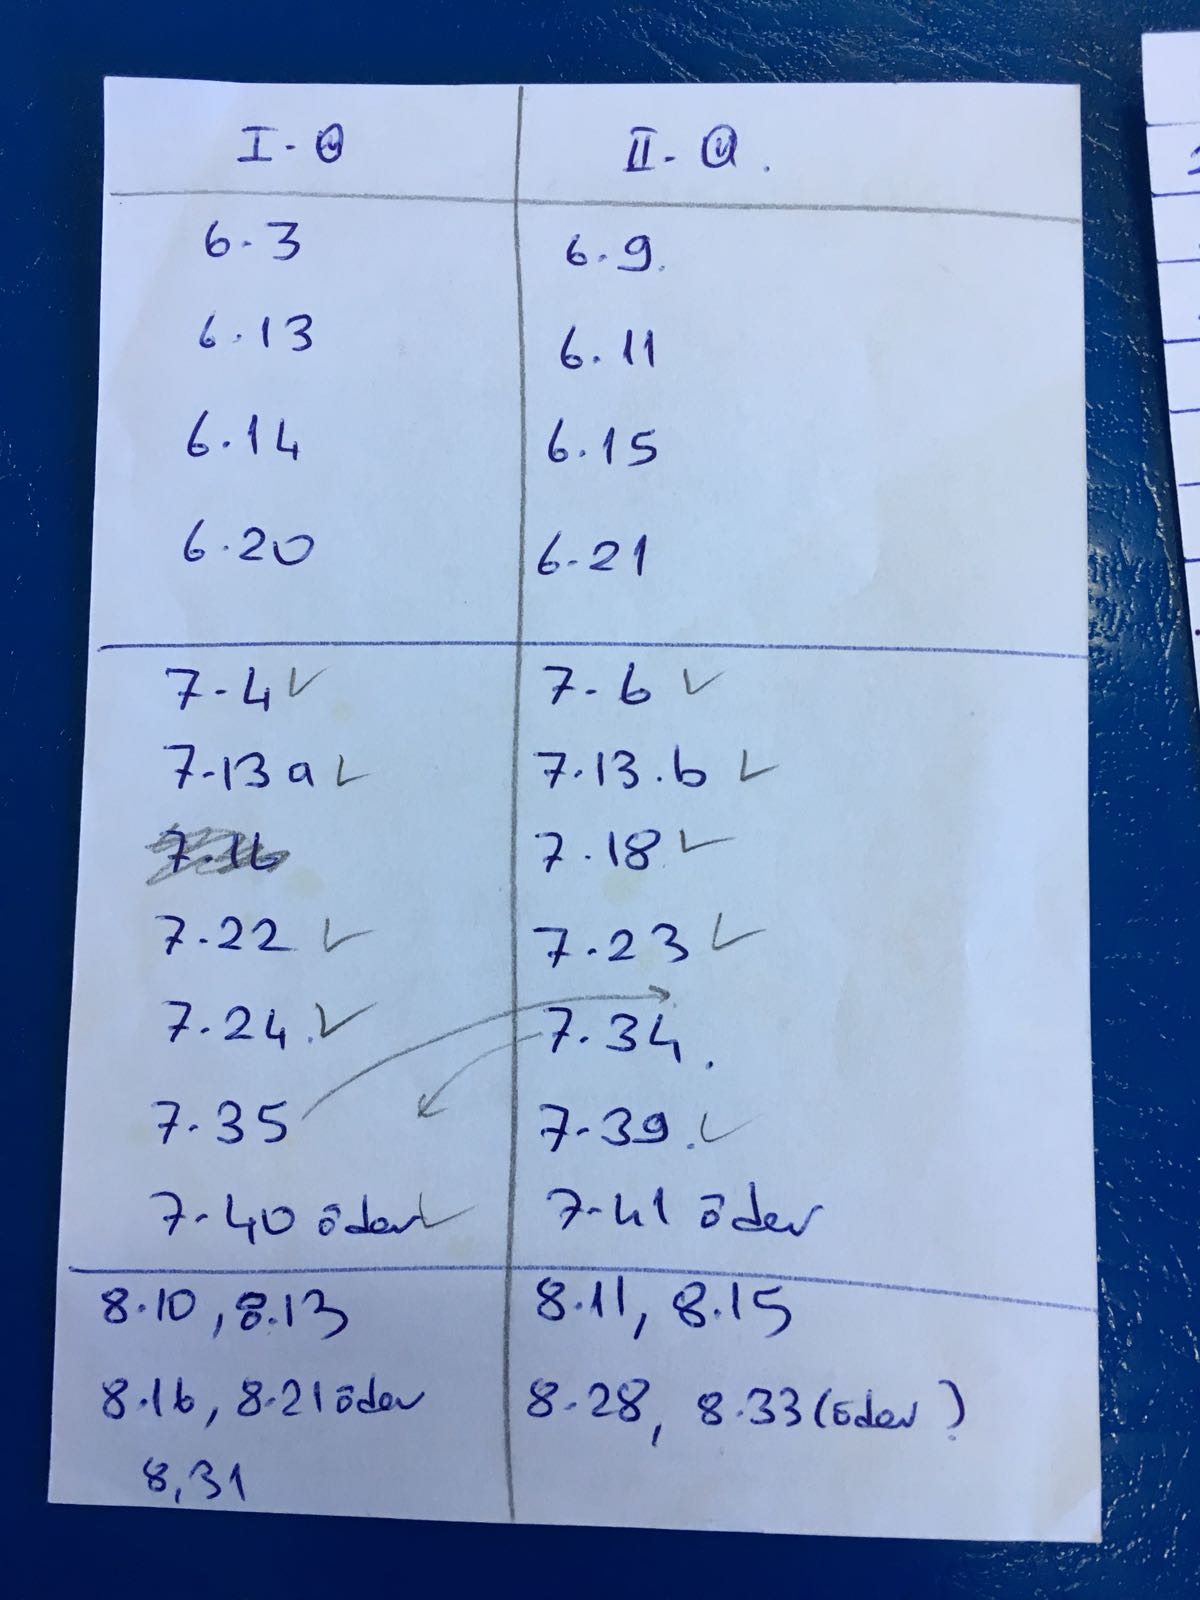 I-Ö II-Ö.
6.3 6.9.
6.13 6.11
6.14 6.15
6.20 6.21
7-4 ✓ 7-6 ✓
7-13a ✓ 7.13.b ✓
7.16 7.18 ✓
7.22 ✓ 7.23 ✓
7.24. ✓ 7.34.
7-35 7-39. ✓
7-40 ödev ✓ 7-41 ödev
8.10, 8.13 8.11, 8.15
8.16, 8.21 ödev 8.28, 8.33 (ödev)
8,31